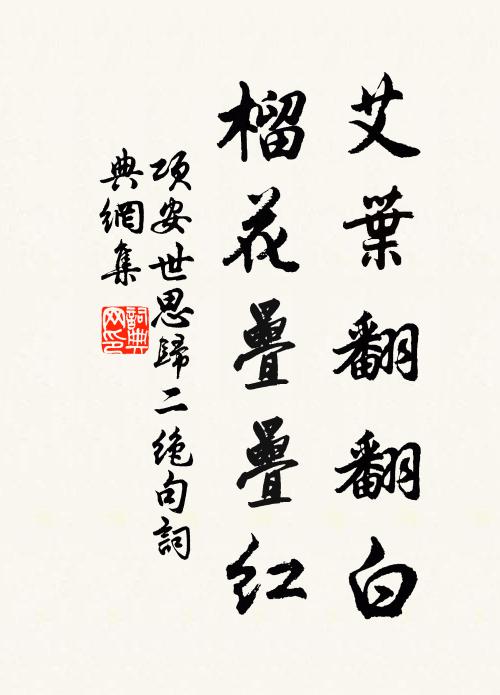 艾葉翻翻白
榴花疊疊紅
項安世思歸二絶句詞
典網集
詞典
网印